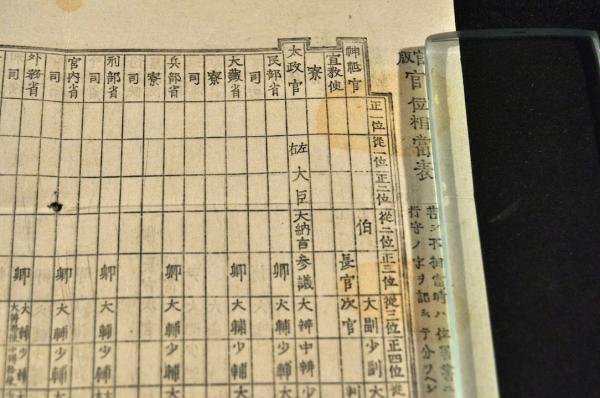 官版
官位相當表
正一位 從一位 正二位 從二位 正三位 從三位 正四位 從
神祇官 伯 大副 少副 大
宣教使 長官 次官 判
寮
太政官 左右大臣 大納言 參議 大辨 中辨 少
民部省 卿 大輔 少輔 大
司
大藏省 卿 大輔 少輔 大
寮
司
兵部省 卿 大輔 少輔 大
寮
司
刑部省 卿 大輔 少輔 大
司
宮內省 卿 大輔 少輔
司
外務省 卿 大輔 少輔
司